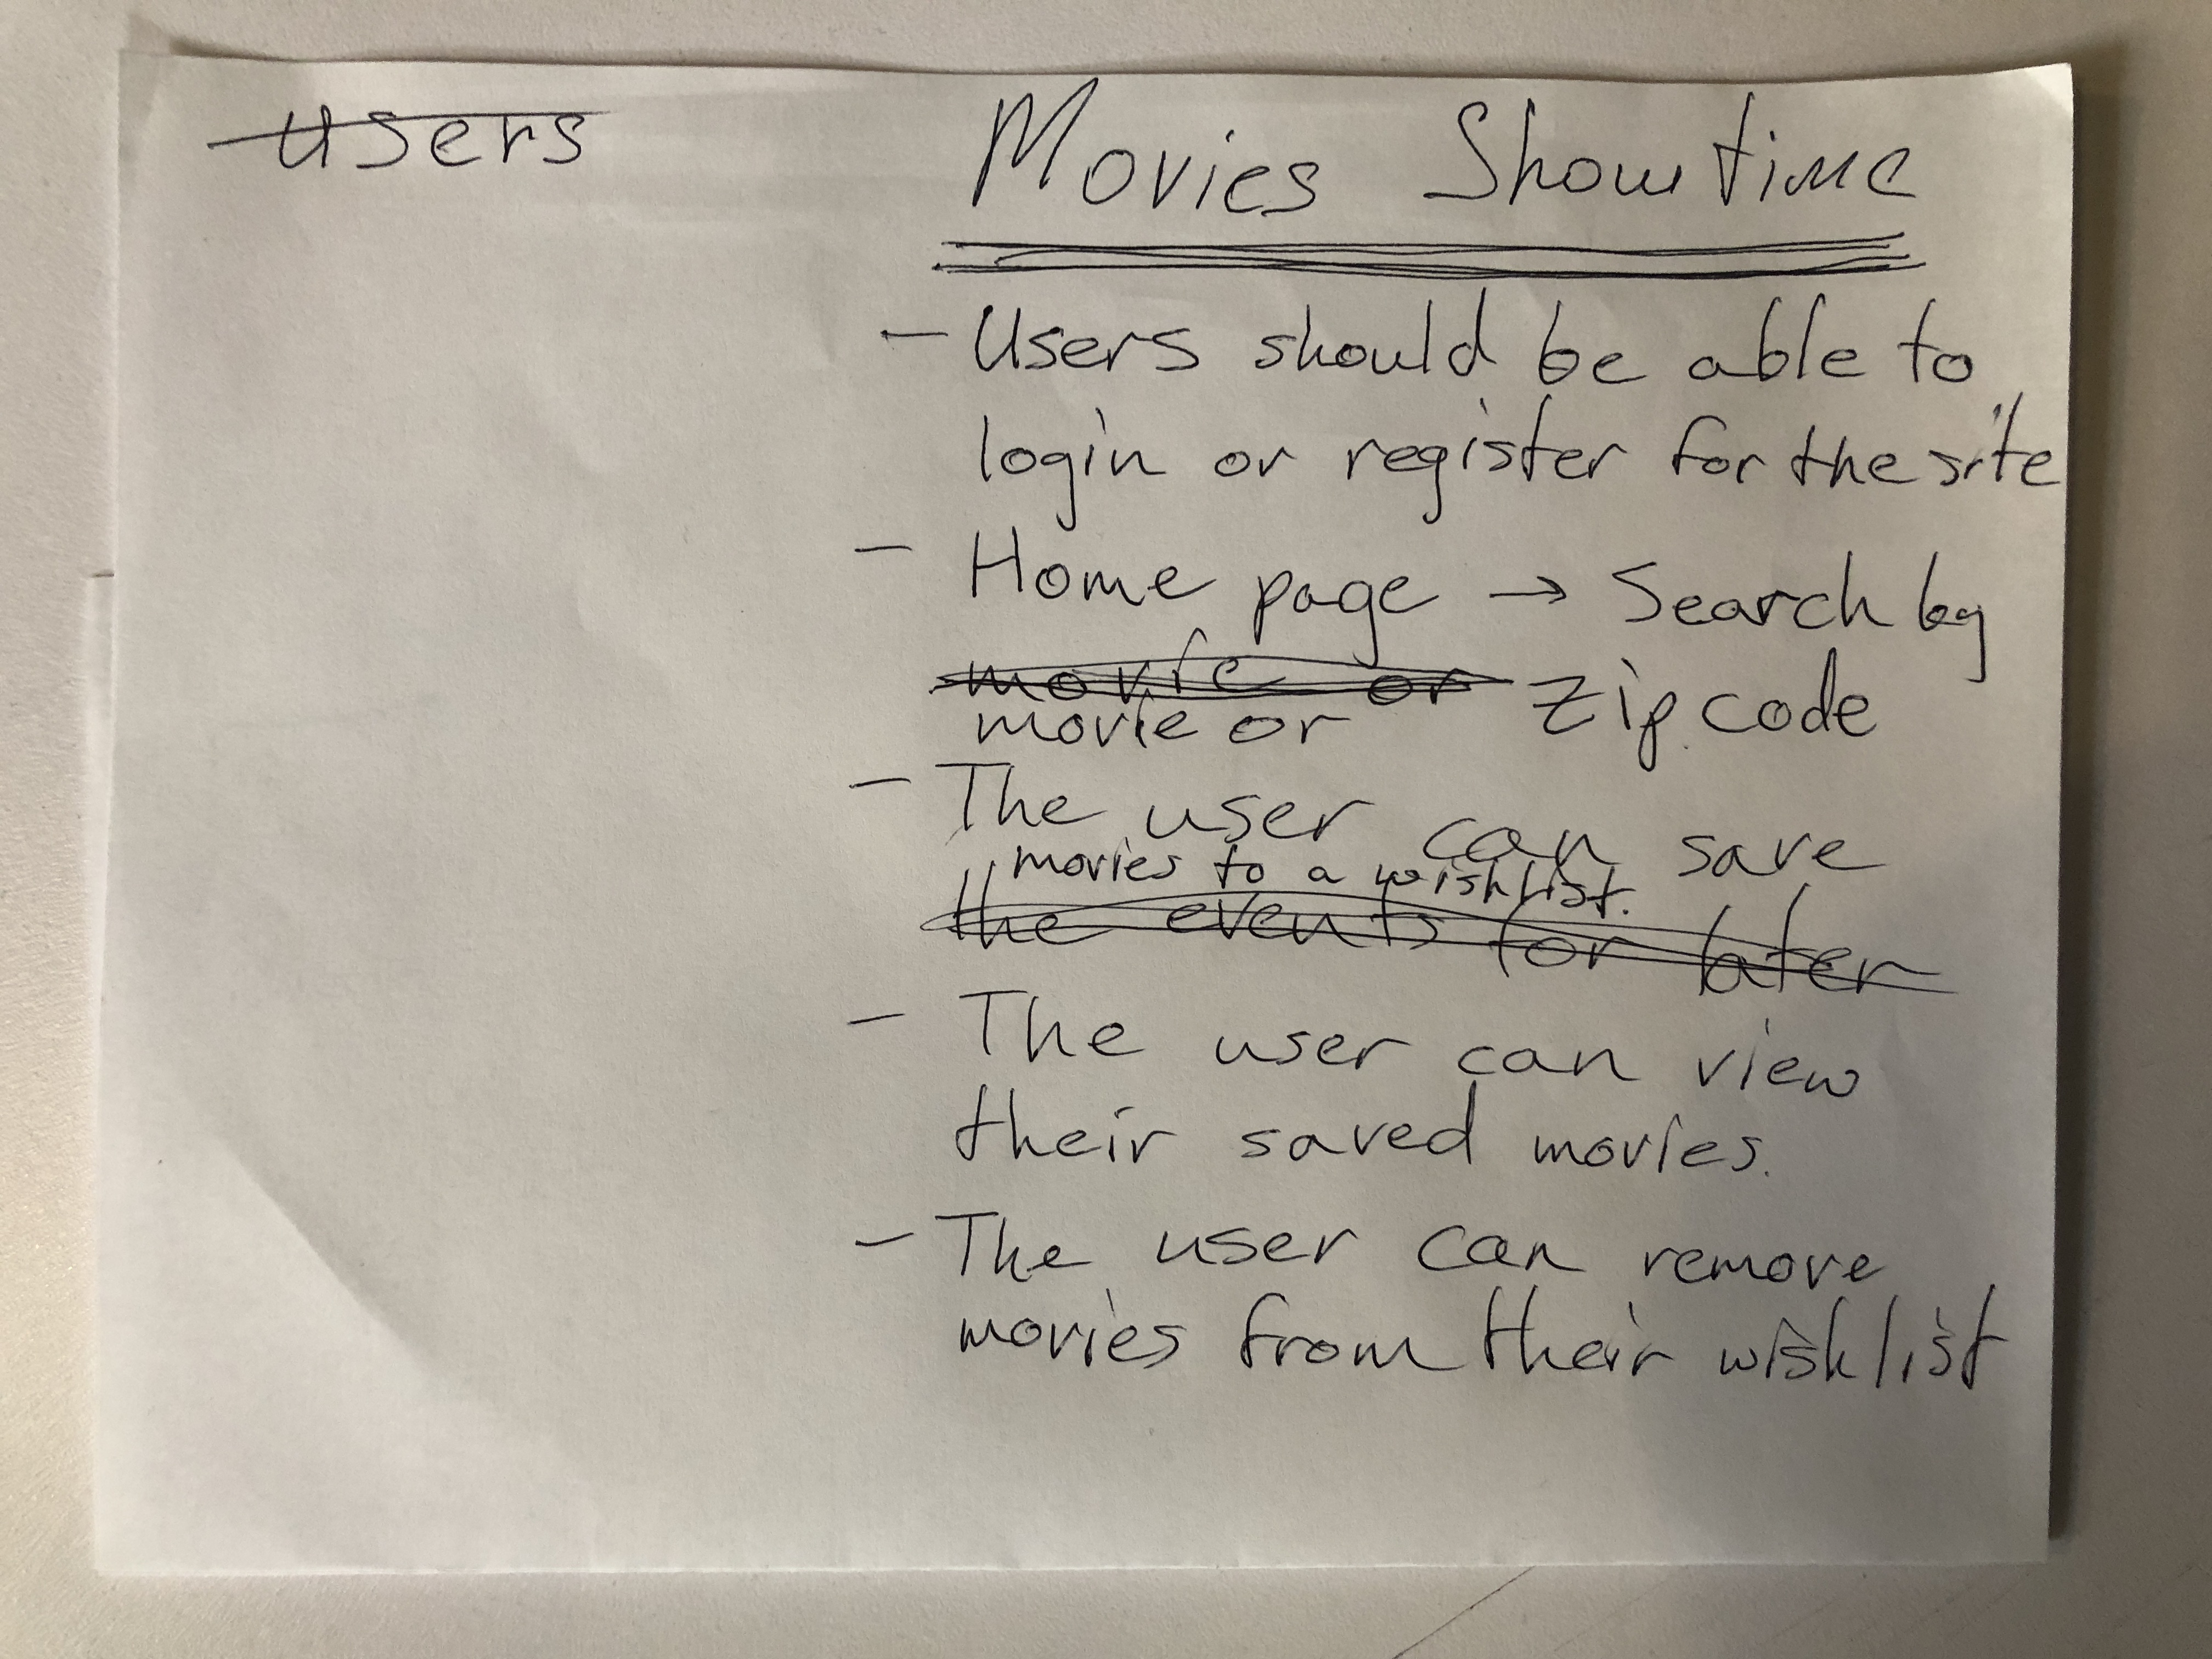 Users
Movies Showtime
- Users should be able to
login or register for the site
- Home page → Search by
movie or
movie or zip code
- The user can save
movies to a wishlist.
the events for later
- The user can view
their saved movies.
- The user can remove
movies from their wishlist